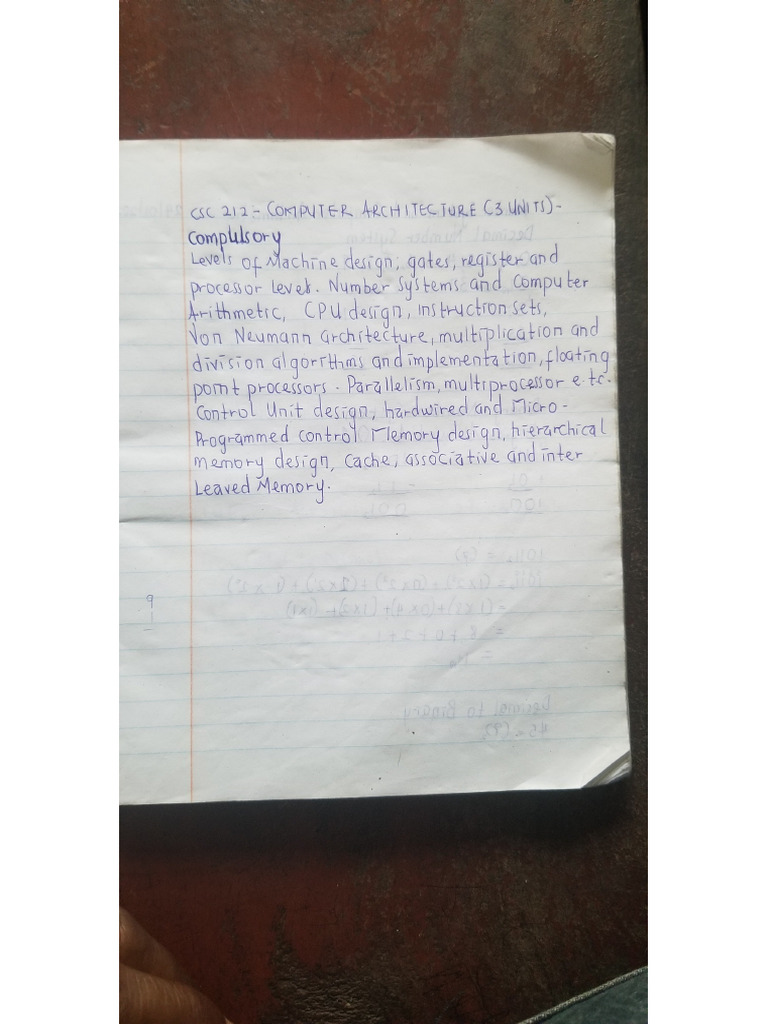 CSC 212 - COMPUTER ARCHITECTURE (3 UNITS) -
Compulsory
Levels of Machine design; gates, register and
processor level. Number Systems and Computer
Arithmetic, CPU design, instruction sets,
Von Neumann architecture, multiplication and
division algorithms and implementation, floating
point processors. Parallelism, multiprocessor e.t.c.
Control Unit design, hardwired and Micro-
Programmed control Memory design, hierarchical
memory design, Cache, associative and inter
Leaved Memory.
9